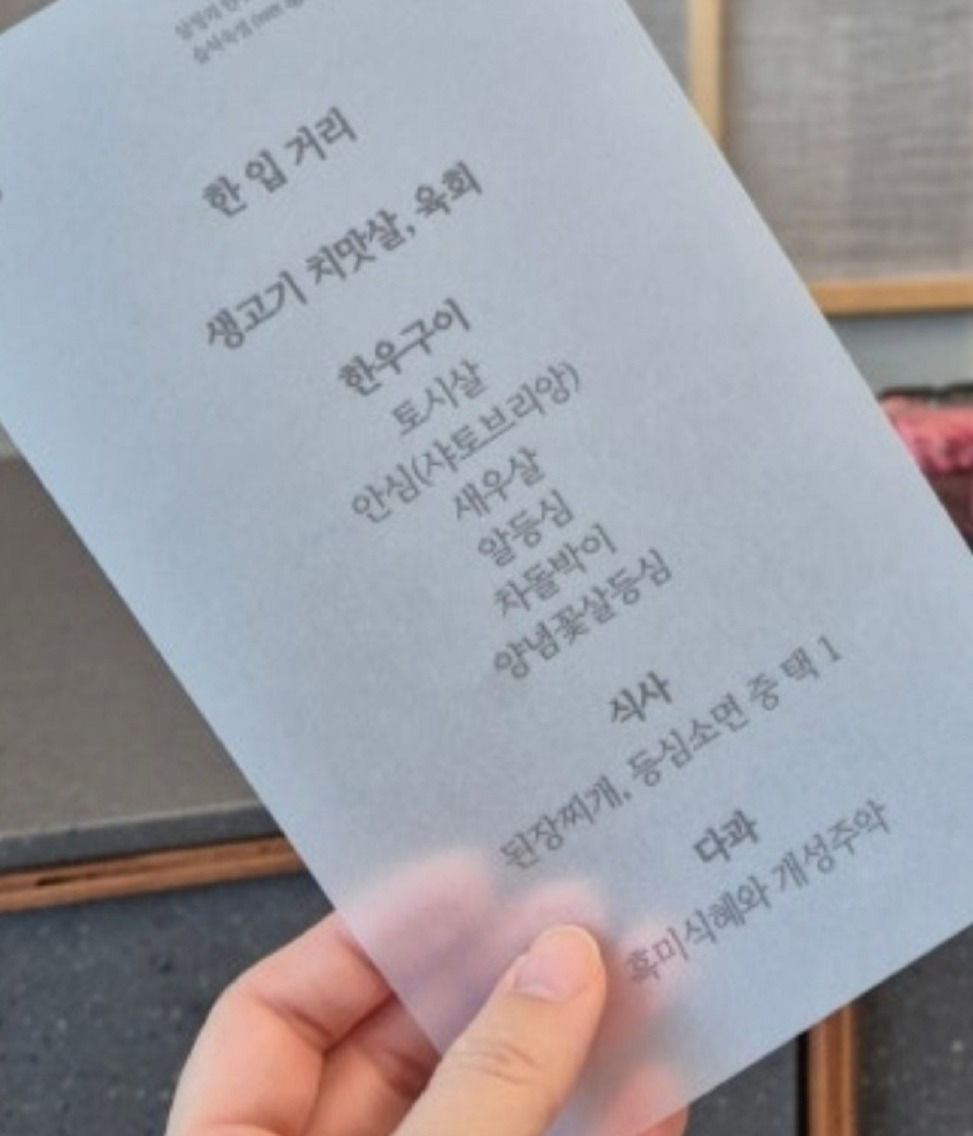 한 입 거리
생고기 치맛살, 육회
한우구이
토시살
안심(샤토브리앙)
새우살
알등심
차돌박이
양념꽃살등심
식사
된장찌개, 등심소면 중 택 1
다과
흑미식혜와 개성주악